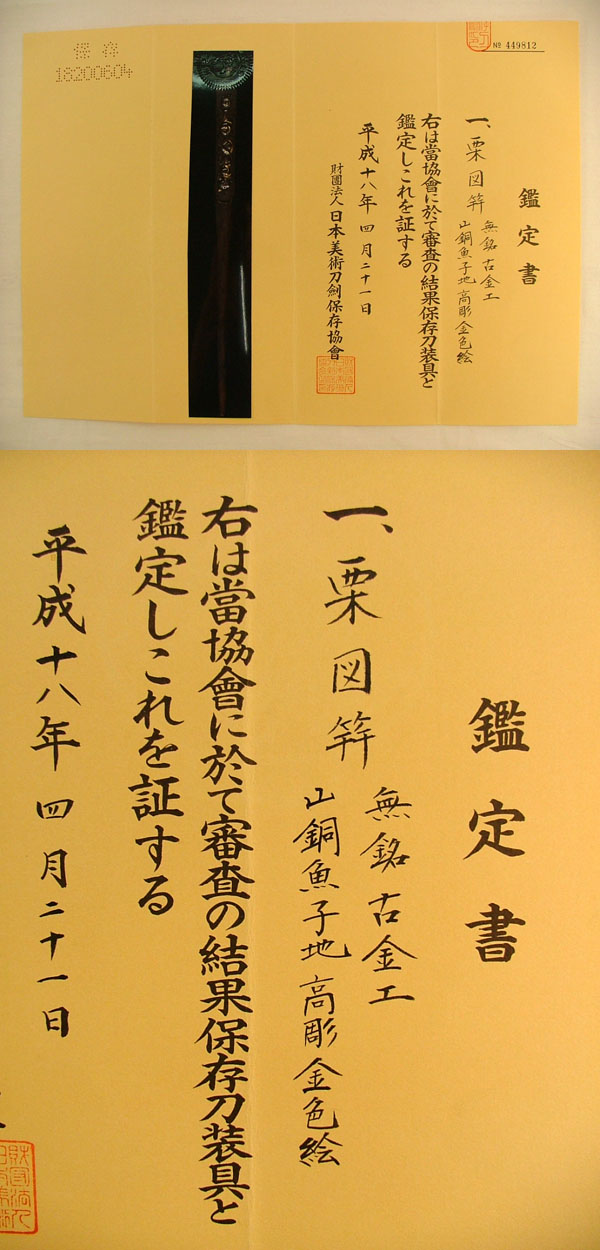 保存
18200604
№ 449812
鑑定書
一、栗図笄
無銘古金工
山銅魚子地高彫金色絵
右は當協會に於て審査の結果保存刀装具と
鑑定しこれを証する
平成十八年四月二十一日
財團法人日本美術刀劍保存協會
鑑定書
一、栗図笄
無銘古金工
山銅魚子地高彫金色絵
右は當協會に於て審査の結果保存刀装具と
鑑定しこれを証する
平成十八年四月二十一日